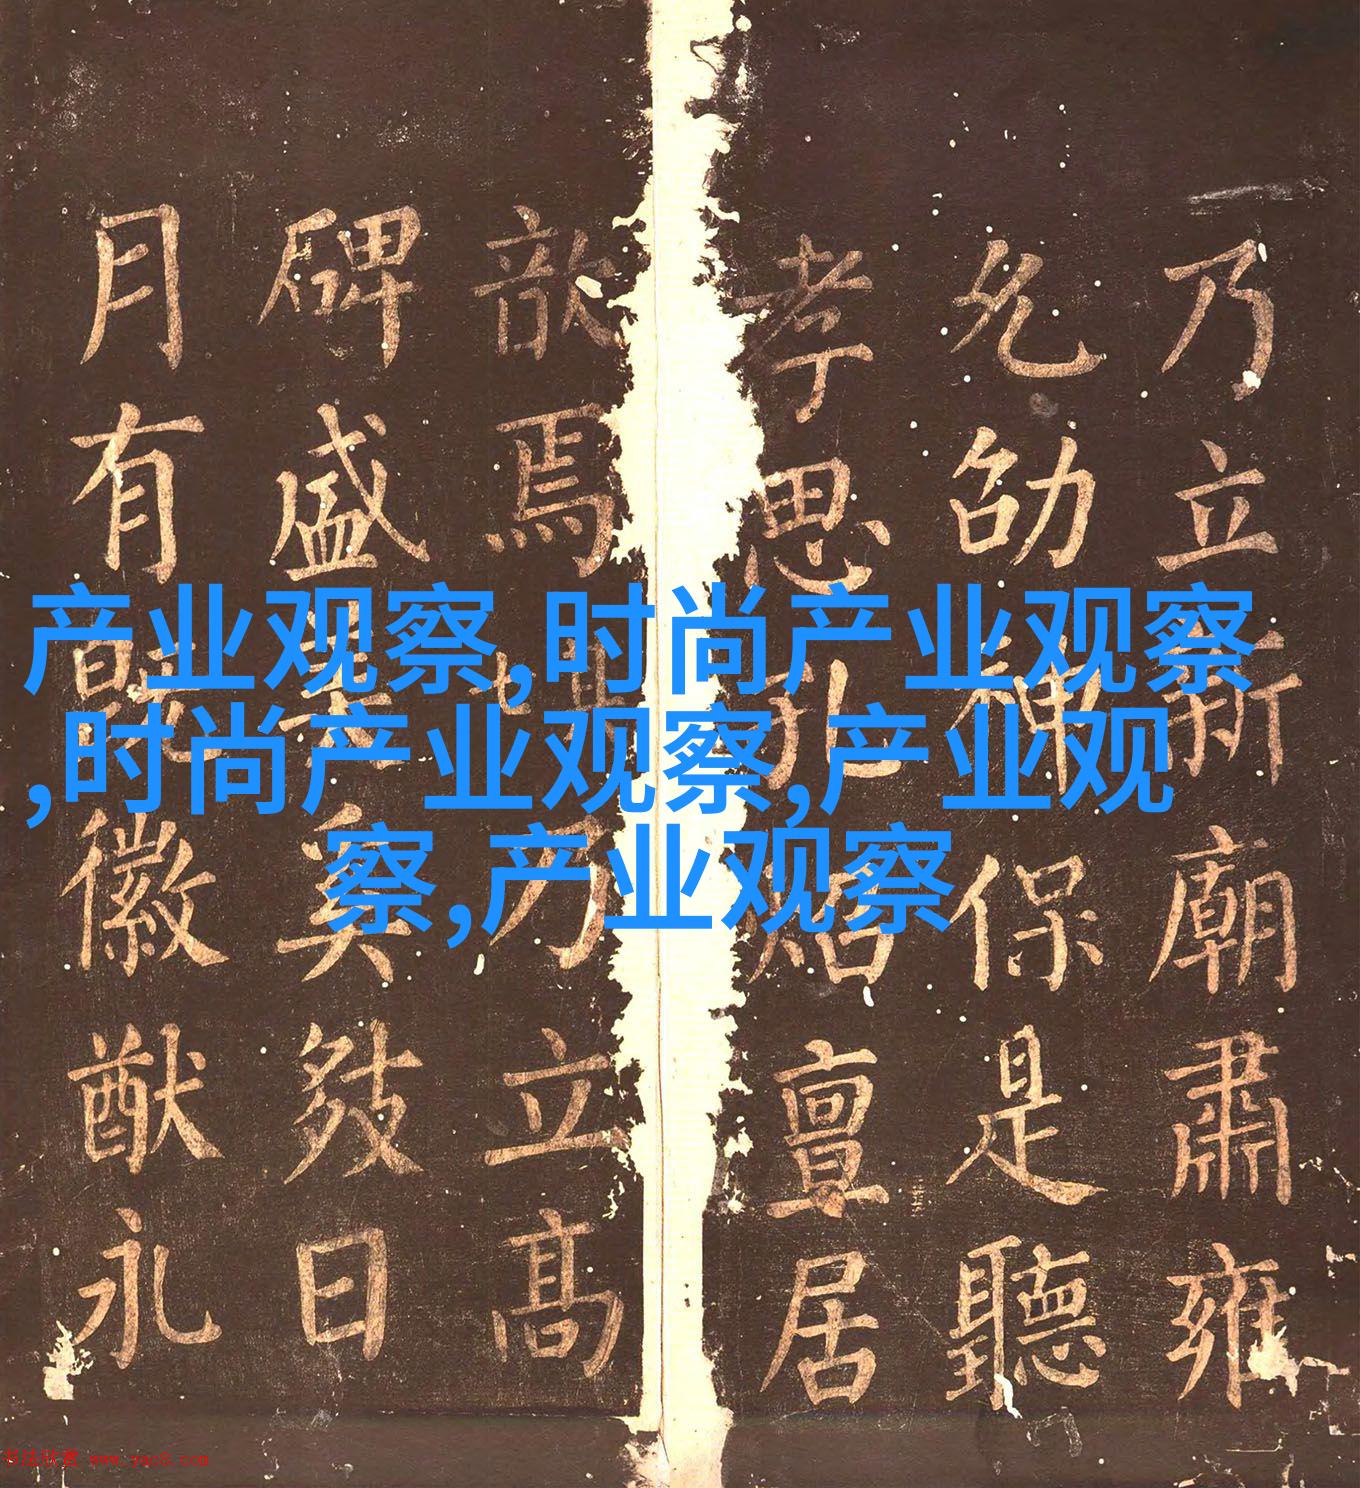 产业观察,时尚产业观察
,时尚产业观察,产业观
察,产业观察
乃立新廟肅雍
允劭神保是聽
孝思孔昭亶居
歆焉乃立高
碑盛矣日
月有徽猷永
书法欣赏 www.yac8.com